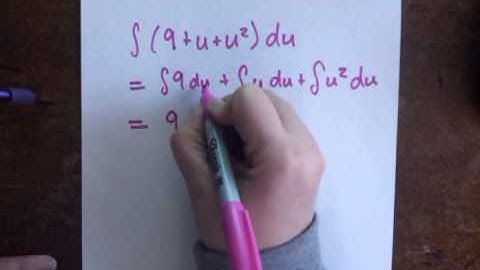 ∫(9+u+u²)du
= ∫9du+∫u du+∫u² du
= 9
Sharpie